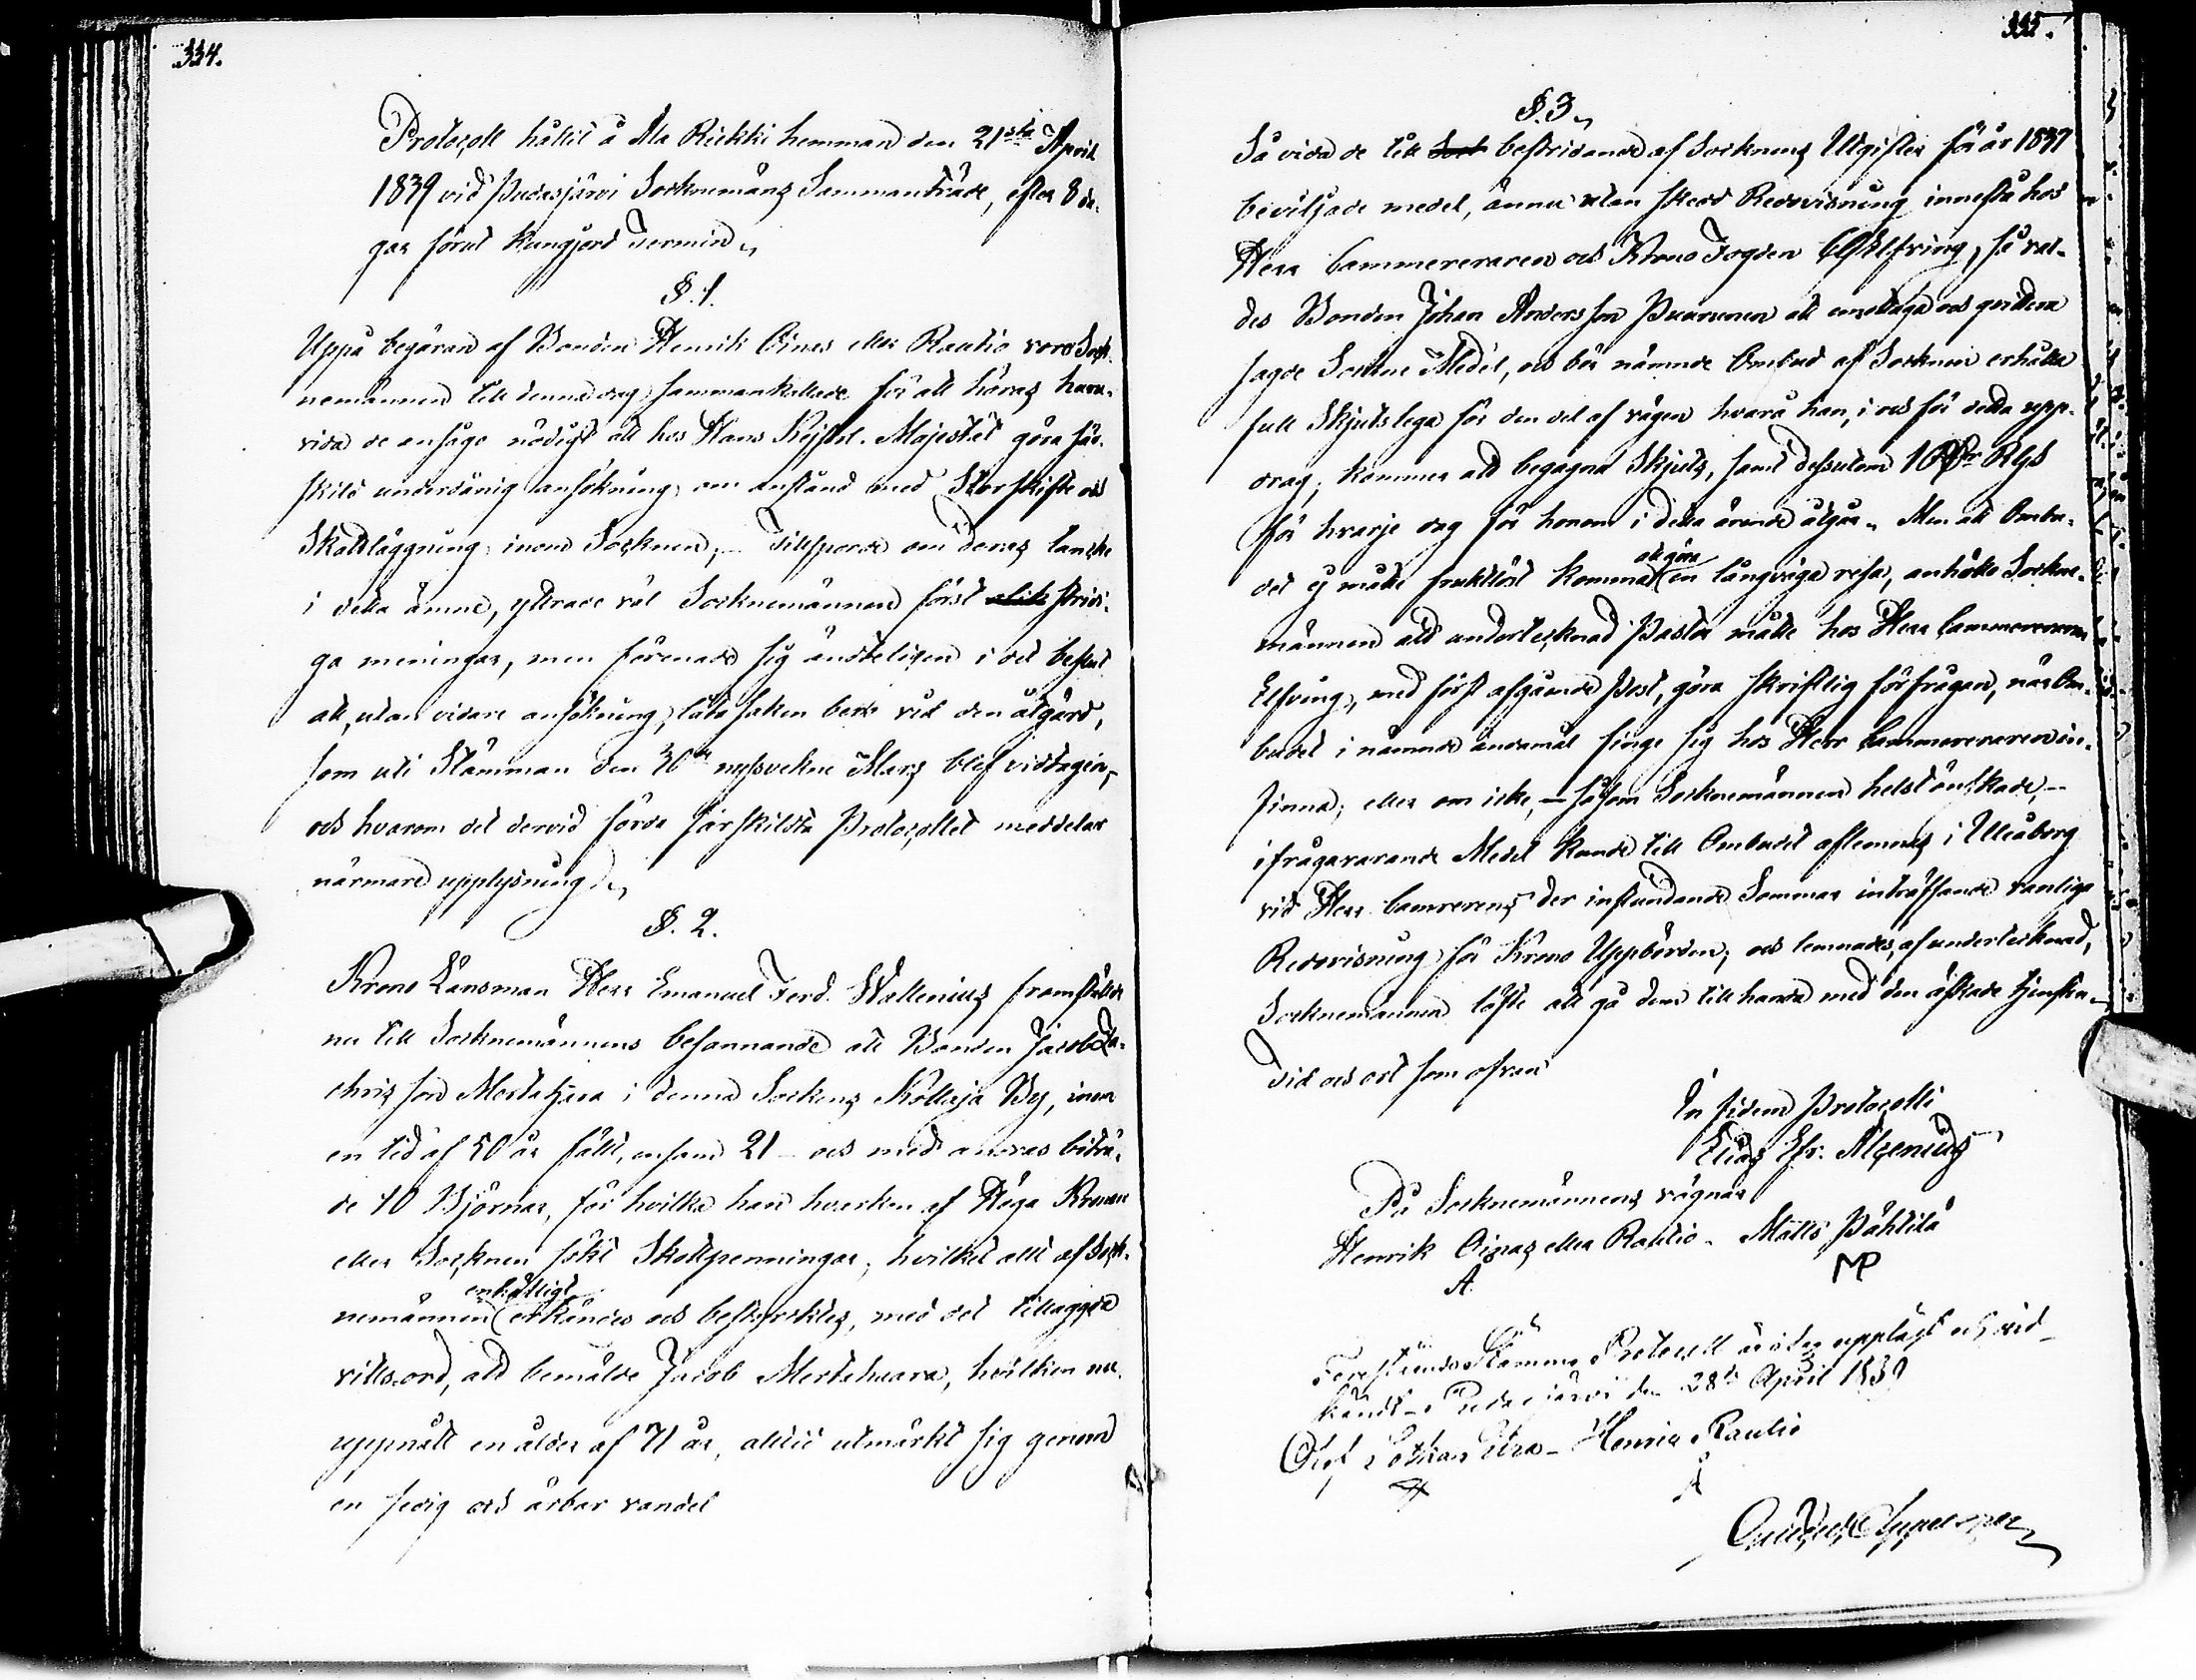 334.
Protocoll hållit å Ala Riekki hemman den 21sta April
1839 vid Pudasjärvi Socknemäns Sammanträde, efter 8 da-
gar förut kungjord Termin.
§. 1.
Uppå begäran af Bonden Henrik Oinas eller Rautio voro Sock-
nemännen till denna dag sammankallade för att höras huru-
vida de ansågo nödigt att hos Hans Kejserl. Majestät göra sär-
skild underdånig ansökning om anstånd med Storskifte och
Skattläggning inom Socknen, – Tillsporde om deras tanke
i detta ämne, yttrade väl Socknemännen först stridi-
ga meningar, men förenade sig ändteligen i det beslut
att, utan vidare ansökning, låta saken bero vid den åtgärd,
som uti Stämman den 30de nyssvekne Mars blef vidtagen,
och hvarom det dervid förda särskildta Protocollet meddelar
närmare upplysning.
§. 2.
Krono Länsman Herr Emanuel Ferd. Wallenius framstälde
nu till Socknemännens besannande att Bonden Jacob Za-
chrisson Mertahara i denna Sockens Kollaja By, inom
en tid af 50 år fällt, ensam 21 – och med andras biträ-
de 10 Björnar, för hvilka han hvarken af Höga Kronan
eller Socknen sökt Skottpenningar; hvilket allt af Sock-
enhälligt
nemännen erkändes och bestyrktes, med det tillagda
vittsord, att bemälde Jacob Mertahuara, hvilken nu
uppnått en ålder af 71 år, alltid utmärkt sig genom
en sedig och ärbar vandel
335.
§. 3.
Så vida de till bestridande af Socknens Utgifter för år 1837
beviljade medel, ännu utan skedd Redovisning innestå hos
Herr Cammereraren och Krono Fogden Elfving, så val-
des Bonden Johan Andersson Puurunen att emottaga och qvittera
sagde Sockne Medel, och bör nämnde Ombud af Socknen erhålla
full Skjutslega för den del af vägen hvarå han, i och för detta upp-
drag, kommer att begagna Skjuts, samt dessutom 1 Rbr
för hvarje dag för honom i detta ärende åtgår. Men att Ombu-
att göra
det ej måtte fruktlöst komma en långväga resa, anhöllo Sockne-
männen att undertecknad Pastor måtte hos Herr Cammereraren
Elfving, med först afgående Post, göra skriftlig förfrågan, när Om-
budet i nämnde ändamål finge sig hos Herr Cammereraren in-
finna; eller om icke, – såsom Socknemännen helst önskade, –
ifrågavarande Medel kunde till Ombudet aflemnas i Uleåborg
vid Herr Camrerens der instundande Sommar inträffande vanliga
Redovisning för Krono Uppbörden; och lemnades, af undertecknad,
Socknemännen löfte att gå dem till handa med den äskade tjensten.
Tid och ort som ofvan
In fidem Protocolli
Elias Efr. Alcenius
På Socknemännens vägnar
Henrik Oinas eller Rautio – Matts Pähtilä
A MP
Förestående Stämmo Protocoll är idag uppläst och vid-
kändt – Pudasjärvi den 28de April 1839
Olof – Henric Rautio